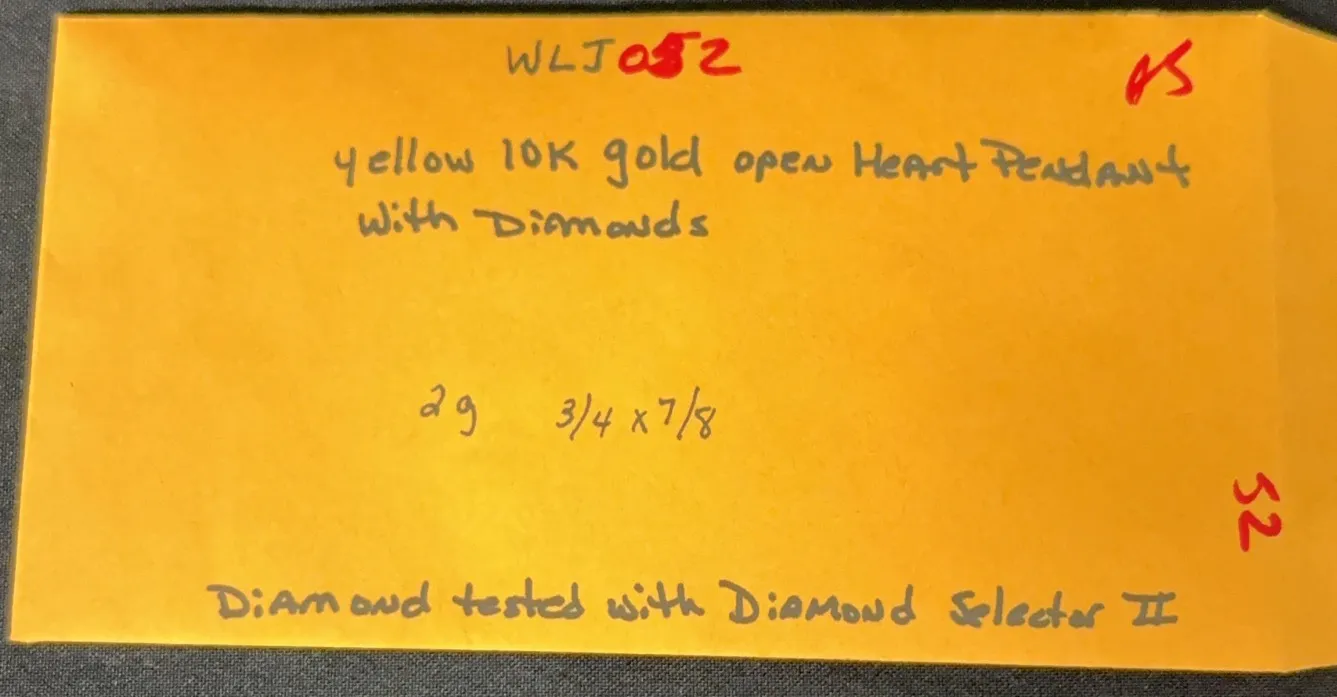 WLJ052
yellow 10K gold open Heart Pendant
with Diamonds
2g 3/4 x 7/8
52
Diamond tested with Diamond Selector II